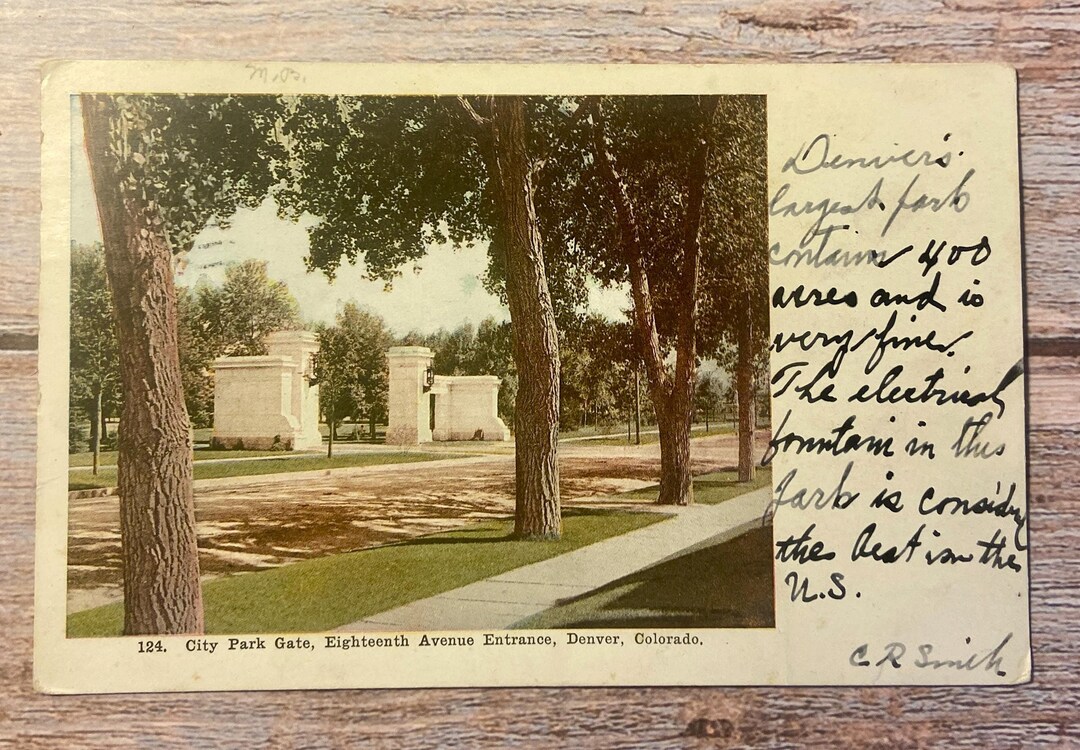 M.B.
Denver's
largest park
contains 400
acres and is
very fine.
The electrical
fountain in this
park is considry
the best in the
U.S.
C R Smith
124. City Park Gate, Eighteenth Avenue Entrance, Denver, Colorado.